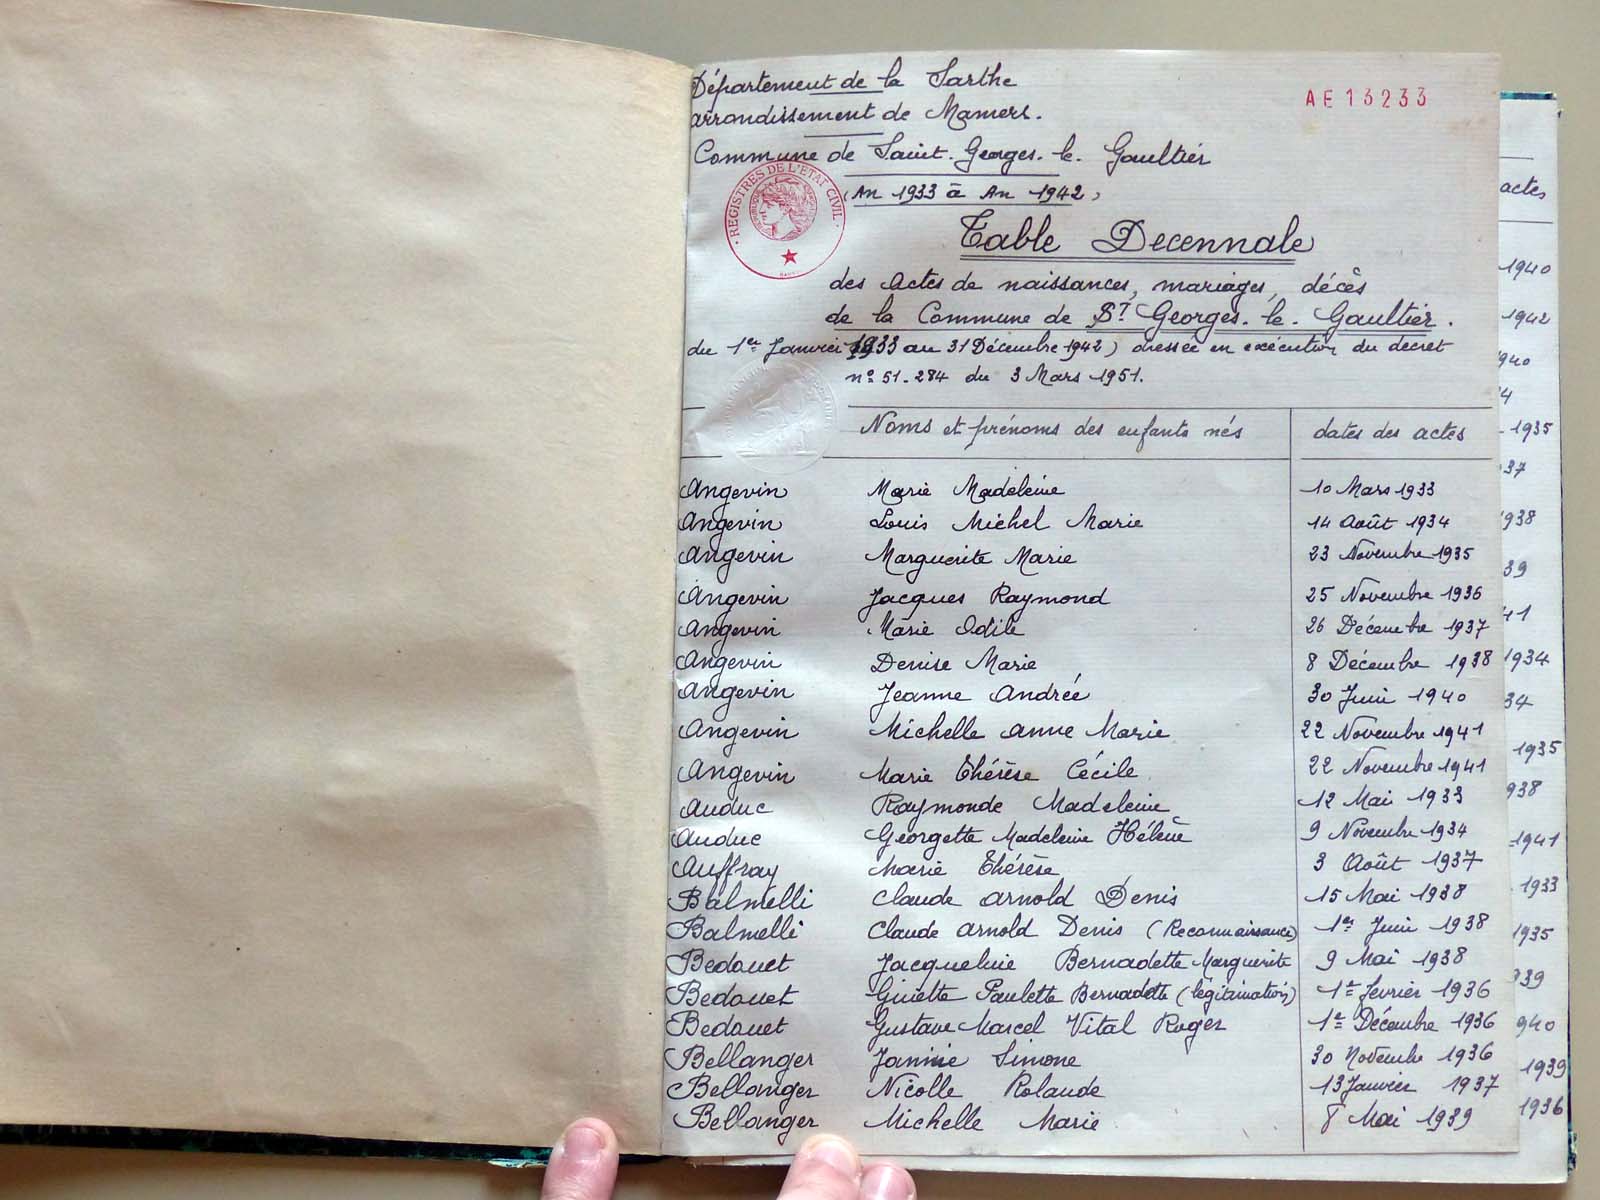 Département de la Sarthe
arrondissement de Mamers.
AE13233
Commune de Saint-Georges-le-Gaultier
REGISTRES DE L'ETAT CIVIL
(An 1933 à An 1942)
Table Decennale
des actes de naissances, mariages, décès
de la Commune de St Georges-le-Gaultier.
du 1er Janvier 1933 au 31 Décembre 1942) dressée en exécution du decret
no 51-284 du 3 Mars 1951.
Noms et prénoms des enfants nés dates des actes
Angevin Marie Madeleine 10 Mars 1933
Angevin Louis Michel Marie 14 Août 1934
Angevin Marguerite Marie 23 Novembre 1935
Angevin Jacques Raymond 25 Novembre 1936
Angevin Marie Odile 26 Décembre 1937
Angevin Denise Marie 8 Décembre 1938
Angevin Jeanne Andrée 30 Juin 1940
Angevin Michelle Anne Marie 22 Novembre 1941
Angevin Marie Thérèse Cécile 22 Novembre 1941
Auduc Raymonde Madeleine 12 Mai 1933
Auduc Georgette Madeleine Hélène 9 Novembre 1934
Auffray Marie Thérèse 3 Août 1937
Balmelli Claude Arnold Denis 15 Mai 1938
Balmelli Claude Arnold Denis (Reconnaissance) 1er Juin 1938
Bedouet Jacqueline Bernadette Marguerite 9 Mai 1938
Bedouet Ginette Paulette Bernadette (légitimation) 1er Fevrier 1936
Bedouet Gustave Marcel Vital Roger 1er Décembre 1936
Bellanger Jannie Simone 30 Novembre 1936
Bellanger Nicolle Rolande 13 Janvier 1937
Bellanger Michelle Marie 8 Mai 1939
actes
1940
1942
940
4
1935
37
1938
39
41
1934
34
1935
938
1941
1933
1935
939
940
1939
1936